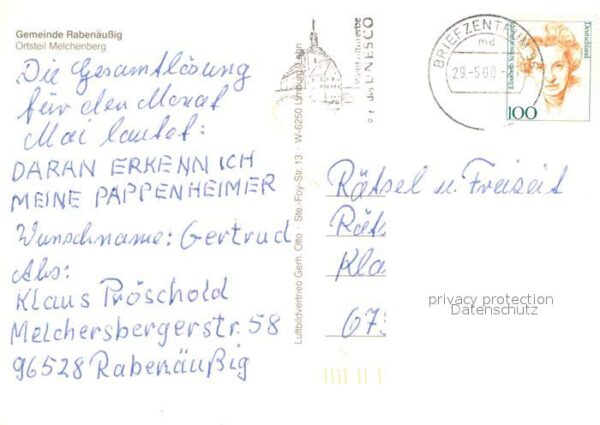 Gemeinde Rabenäußig
Ortsteil Melchenberg
Die Gesamtlösung
für den Monat
Mai lautet:
DARAN ERKENN ICH
MEINE PAPPENHEIMER
Wunschname: Gertrud
Abs:
Klaus Pröschold
Melchersbergerstr. 58
96528 Rabenäußig
Luftbildvertrieb Gerh. Otto · Ste-Foy-Str. 13 · W-6250 Limburg/Lahn
der UNESCO
BRIEFZENTRUM
md
29.-5.00
Deutschland
100
Rätsel u. Freizeit
Räts
Kla
67
privacy protection
Datenschutz